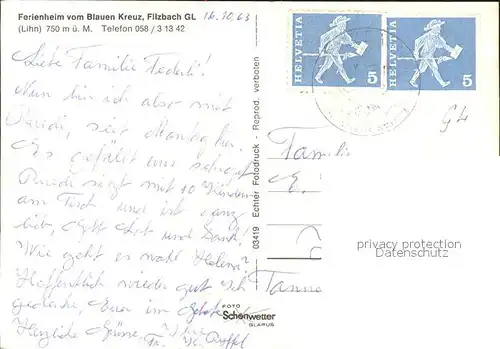 Ferienheim vom Blauen Kreuz, Filzbach GL 16.10.63
(Lihn) 750 m ü. M. Telefon 058 / 3 13 42
Liebe Familie Federli!
Nun bin ich also mit
Ruedi, seit Montag hier.
Es gefällt uns sehr gut
Ruedi sitzt mit 10 Kindern
am Tisch und ist ganz
lieb, Gott Lob und Dank!
Wie geht es wohl Helena?
Hoffentlich wieder gut. Ich
gedenke, Euer im Gebete
Herzliche Grüsse, Ihre
Fr.
03419 Echter Fotodruck - Reprod. verboten
FOTO
Schönwetter
GLARUS
HELVETIA 5
HELVETIA 5
GL
Familie
E.
Tanne
privacy protection
Datenschutz